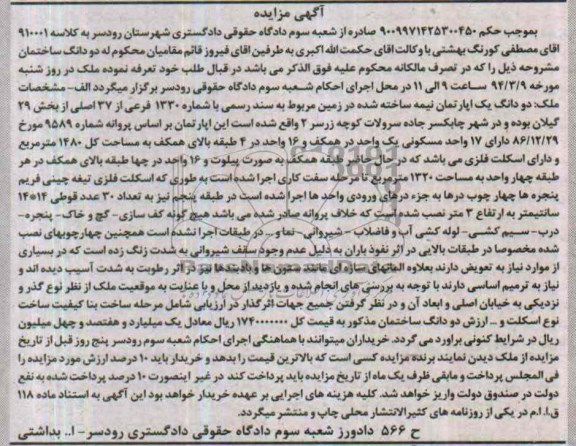 آگهی مزایده
بموجب حکم ۹۰۰۹۹۷۱۴۲۵۳۰۰۴۵۰ صادره از شعبه سوم دادگاه حقوقی دادگستری شهرستان رودسر به کلاسه ۹۱۰۰۰۱
اقای مصطفی کورنگ بهشتی با وکالت اقای حکمت الله اکبری به طرفین اقای فیروز قائم مقامیان محکوم له دو دانگ ساختمان
مشروحه ذیل را که در تصرف مالکانه محکوم علیه فوق الذکر می باشد در قبال طلب خود تعرفه نموده ملک در روز شنبه
مورخه ۹۴/۳/۹ ساعت ۹ الی ۱۱ در محل اجرای احکام شعبه سوم دادگاه حقوقی رودسر برگزار میگردد الف- مشخصات
ملک: دو دانگ یک اپارتمان نیمه ساخته شده در زمین مربوط به سند رسمی با شماره ۱۳۳۰ فرعی از ۳۷ اصلی از بخش ۲۹
گیلان بوده و در شهر چابکسر جاده سرولات کوچه زرسر ۲ واقع شده است این اپارتمان بر اساس پروانه شماره ۹۵۸۹ مورخ
۸۶/۱۲/۲۹ دارای ۱۷ واحد مسکونی یک واحد در همکف و ۱۶ واحد در ۴ طبقه بالای همکف به مساحت کل ۱۴۸۰ مترمربع
و دارای اسکلت فلزی می باشد که در حال حاضر طبقه همکف به صورت پیلوت و ۱۶ واحد در چها طبقه بالای همکف در هر
طبقه چهار واحد به مساحت ۱۳۲۰ مترمربع تا مرحله سفت کاری اجرا شده است به طوری که اسکلت فلزی تیغه چینی فریم
پنجره ها چهار چوب درها به جزء در های ورودی واحد ها اجرا شده است در طبقه پنجم نیز به تعداد ۳۰ عدد قوطی ۱۴۰۱۴
سانتیمتر به ارتفاع ۳ متر نصب شده است که خلاف پروانه صادر شده می باشد هیچ گونه کف سازی- گچ و خاک- پنجره-
درب- سیم کشی- لوله کشی آب و فاضلاب- شیروانی- نما و ... در طبقات اجرا نشده است همچنین چهارچوبهای نصب
شده مخصوصا در طبقات بالایی در اثر نفوذ باران به دلیل عدم وجود سقف شیروانی به شدت زنگ زده است که در بسیاری
از موارد نیاز به تعویض دارند بعلاوه المانهای سازه ای مانند ستون ها و بادبندها نیز در اثر رطوبت به شدت آسیب دیده اند و
نیاز به ترمیم اساسی دارند با توجه به بررسی های انجام شده و بازدید از محل و با عنایت به موقعیت ملک از نظر نوع گذر و
نزدیکی به خیابان اصلی و ابعاد آن و در نظر گرفتن جمیع جهات اثرگذار در ارزیابی شامل مرحله ساخت بنا کیفیت ساخت
نوع اسکلت و ... ارزش دو دانگ ساختمان مذکور به قیمت کل ۱۷۴۰۰۰۰۰۰۰ ریال معادل یک میلیارد و هفتصد و چهل میلیون
ریال در شرایط کنونی براورد می گردد. خریداران میتوانند با هماهنگی اجرای احکام شعبه سوم رودسر پنج روز قبل از تاریخ
مزایده از ملک دیدن نمایند برنده مزایده کسی است که بالاترین قیمت را بدهد و خریدار باید ۱۰ درصد ارزش مورد مزایده را
فی المجلس پرداخت و مابقی ظرف یک ماه از تاریخ مزایده باید پرداخت کند در غیر اینصورت ۱۰ درصد پرداخت شده به نفع
دولت در صندوق دولت واریز خواهد شد. کلیه هزینه های اجرایی بر عهده خریدار خواهد بود این آگهی به استناد ماده ۱۱۸
ق.ا.ا.م در یکی از روزنامه های کثیرالانتشار محلی چاپ و منتشر میگردد.
ح ۵۶۶ دادورز شعبه سوم دادگاه حقوقی دادگستری رودسر- ا.. بداشتی